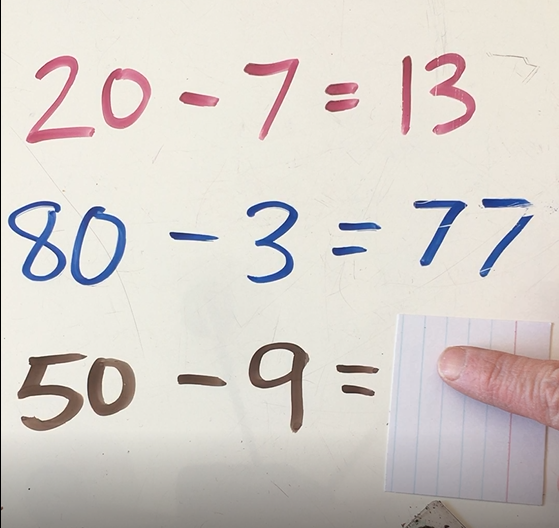 20 - 7 = 13
80 - 3 = 77
50 - 9 =